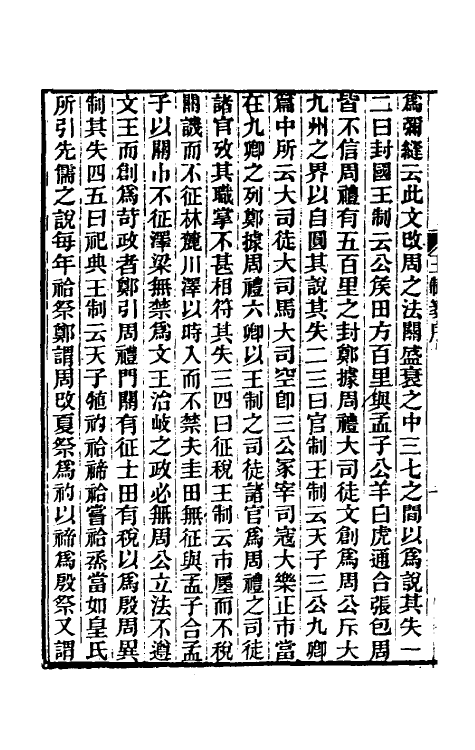 爲彌縫云此文改周之法關盛衰之中三七之閒以爲說其失一
二曰封國王制云公侯田方百里與孟子公羊白虎通合張包周
皆不信周禮有五百里之封鄭據周禮大司徒文創爲周公斥大
九州之界以自圓其說其失二三曰官制王制云天子三公九卿
篇中所云大司徒大司馬大司空卽三公冢宰司寇大樂正市當
在九卿之列鄭據周禮六卿以王制之司徒諸官爲周禮之司徒
諸官攷其職掌不甚相符其失三四曰征稅王制云市廛而不稅
關譏而不征林麓川澤以時入而不禁夫圭田無征與孟子合孟
子以關市不征澤梁無禁爲文王治岐之政必無周公立法不遵
文王而創爲苛政者鄭引周禮門關有征士田有稅以爲殷周異
制其失四五曰祀典王制云天子犆礿祫禘祫嘗祫烝當如皇氏
所引先儒之說每年祫祭鄭謂周改夏祭爲礿以禘爲殷祭又謂
王制箋序
一